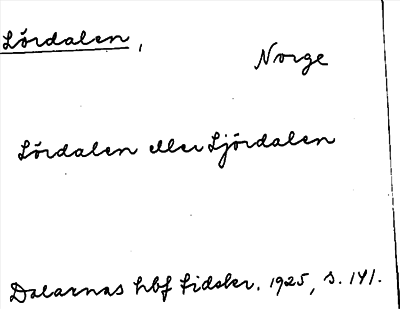 Lördalen,
Norge
Lördalen eller Ljördalen
Dalarnas hbf tidskr. 1925, s. 141.